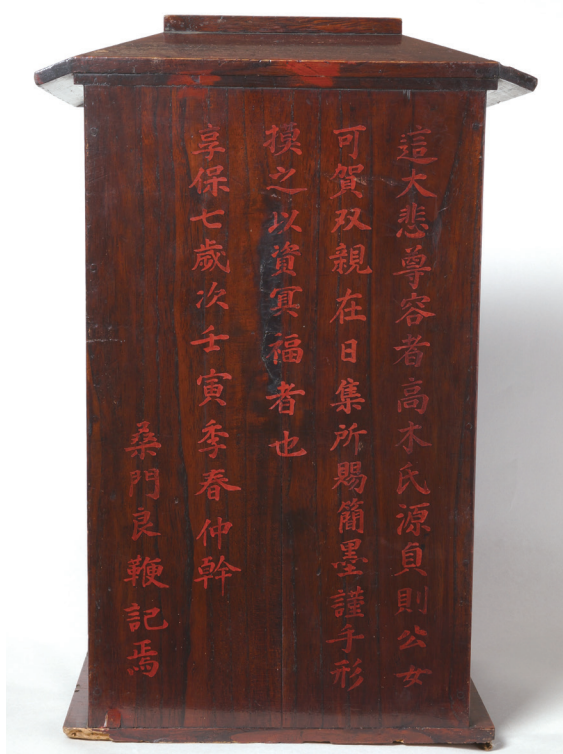 這大悲尊容者高木氏源貞則公女
可賀双親在日集所賜簡墨謹手形
摸之以資冥福者也
享保七歳次壬寅季春仲幹
桑門良鞭記焉